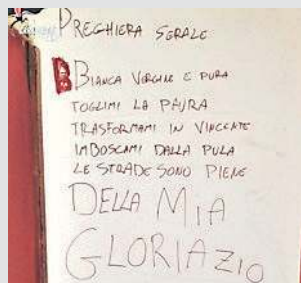 PREGHIERA SERALE
BIANCA VERGINE E PURA
TOGLIMI LA PAURA
TRASFORMAMI IN VINCENTE
IMBOSCAMI DALLA PULA
LE STRADE SONO PIENE
DELLA MIA
GLORIA ZIO